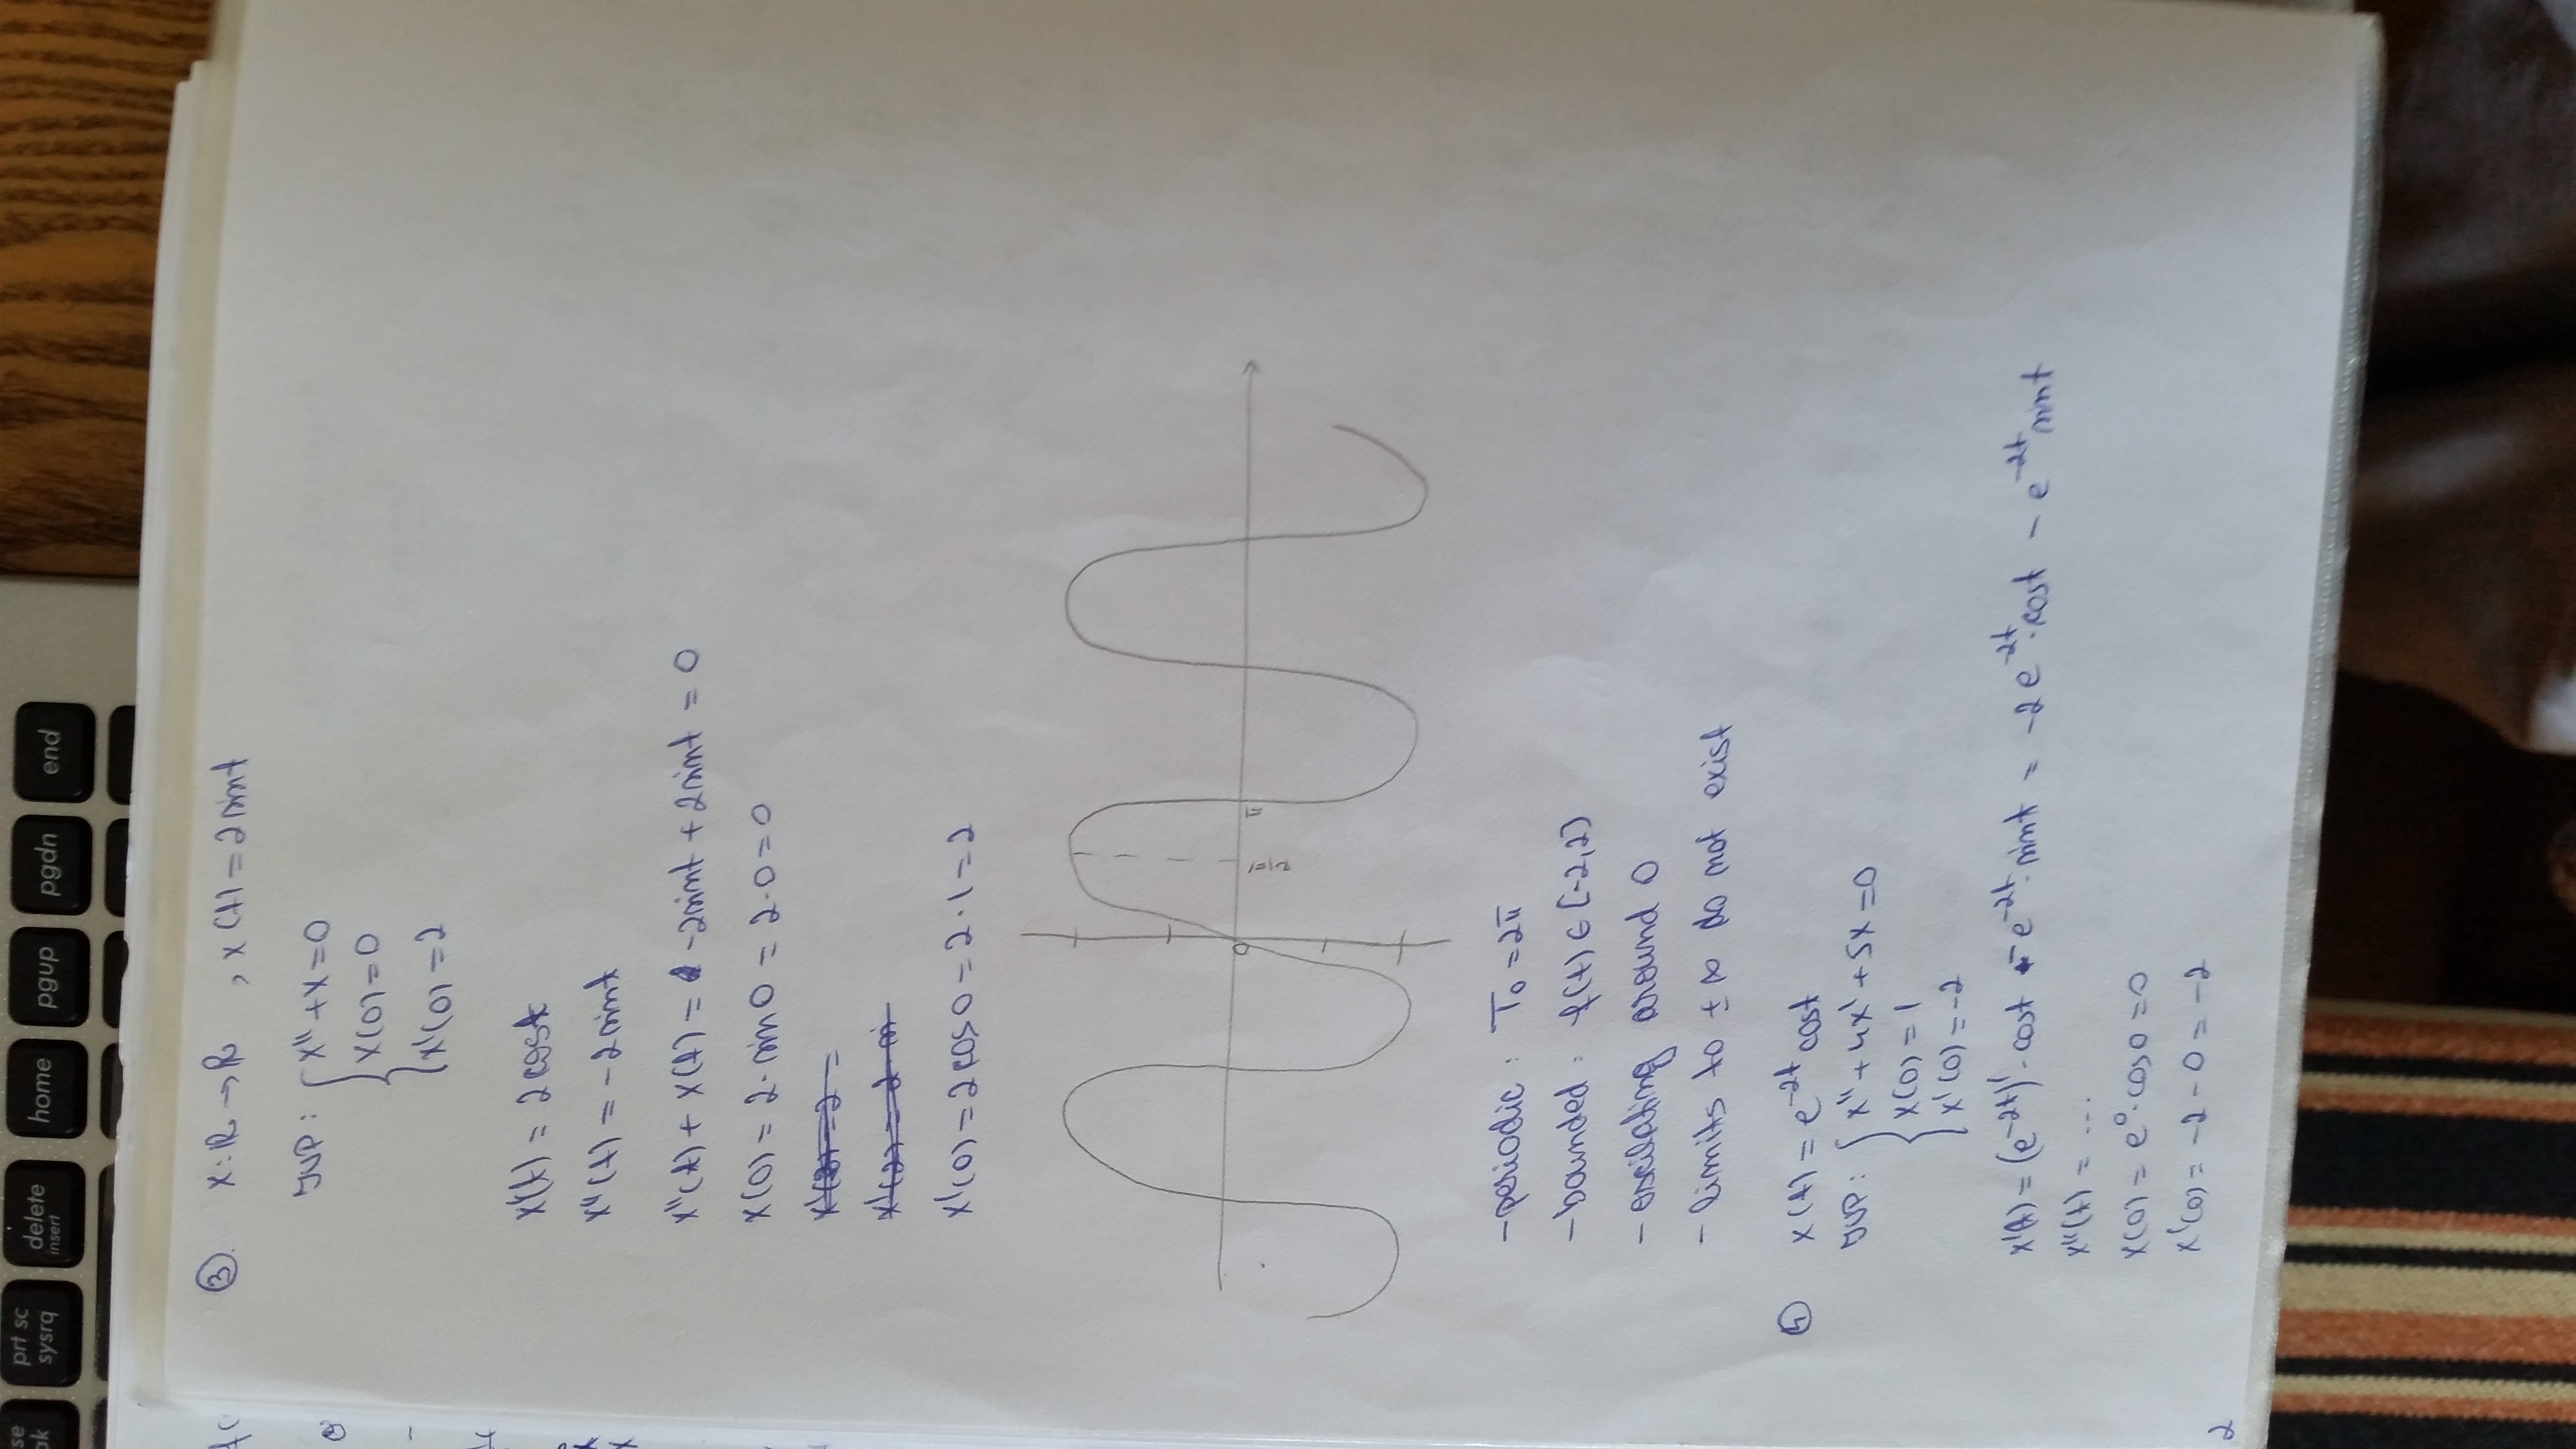 prt sc
sysrq
delete
insert
home
pgup
pgdn
end
③. x: ℝ → ℝ , x(t) = 2 sin t
IVP: { x'' + x = 0
x(0) = 0
x'(0) = 2
x'(t) = 2 cos t
x''(t) = -2 sin t
x''(t) + x(t) = -2 sin t + 2 sin t = 0
x(0) = 2 · sin 0 = 2 · 0 = 0
x'(2) = 2 =
x'(0) = 2 cos 0 = 2 · 1 = 2
0 π/2 π
- periodic : T₀ = 2π
- bounded : f(t) ∈ [-2, 2]
- oscilating around 0
- limits to ± ∞ do not exist
④ x(t) = e^{-2t} cos t
IVP: { x'' + 4x' + 5x = 0
x(0) = 1
x'(0) = -2
x'(t) = (e^{-2t})' · cos t - e^{-2t} · sin t = -2 e^{-2t} · cos t - e^{-2t} sin t
x''(t) = ...
x(0) = e^0 · cos 0 = 0
x'(0) = -2 - 0 = -2
2